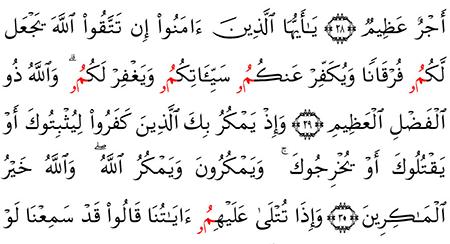 أَجْرٌ عَظِيمٌ ۝٢٨ يَٰأَيُّهَا ٱلَّذِينَ ءَامَنُوا۟ إِن تَتَّقُوا۟ ٱللَّهَ يَجْعَل
لَّكُمُۥ فُرْقَانًا وَيُكَفِّرْ عَنكُمُۥ سَيِّـَٔاتِكُمُۥ وَيَغْفِرْ لَكُمُۥ ۗ وَٱللَّهُ ذُو
ٱلْفَضْلِ ٱلْعَظِيمِ ۝٢٩ وَإِذْ يَمْكُرُ بِكَ ٱلَّذِينَ كَفَرُوا۟ لِيُثْبِتُوكَ أَوْ
يَقْتُلُوكَ أَوْ يُخْرِجُوكَ ۚ وَيَمْكُرُونَ وَيَمْكُرُ ٱللَّهُ ۖ وَٱللَّهُ خَيْرُ
ٱلْمَٰكِرِينَ ۝٣٠ وَإِذَا تُتْلَىٰ عَلَيْهِمُۥ ءَايَٰتُنَا قَالُوا۟ قَدْ سَمِعْنَا لَوْ